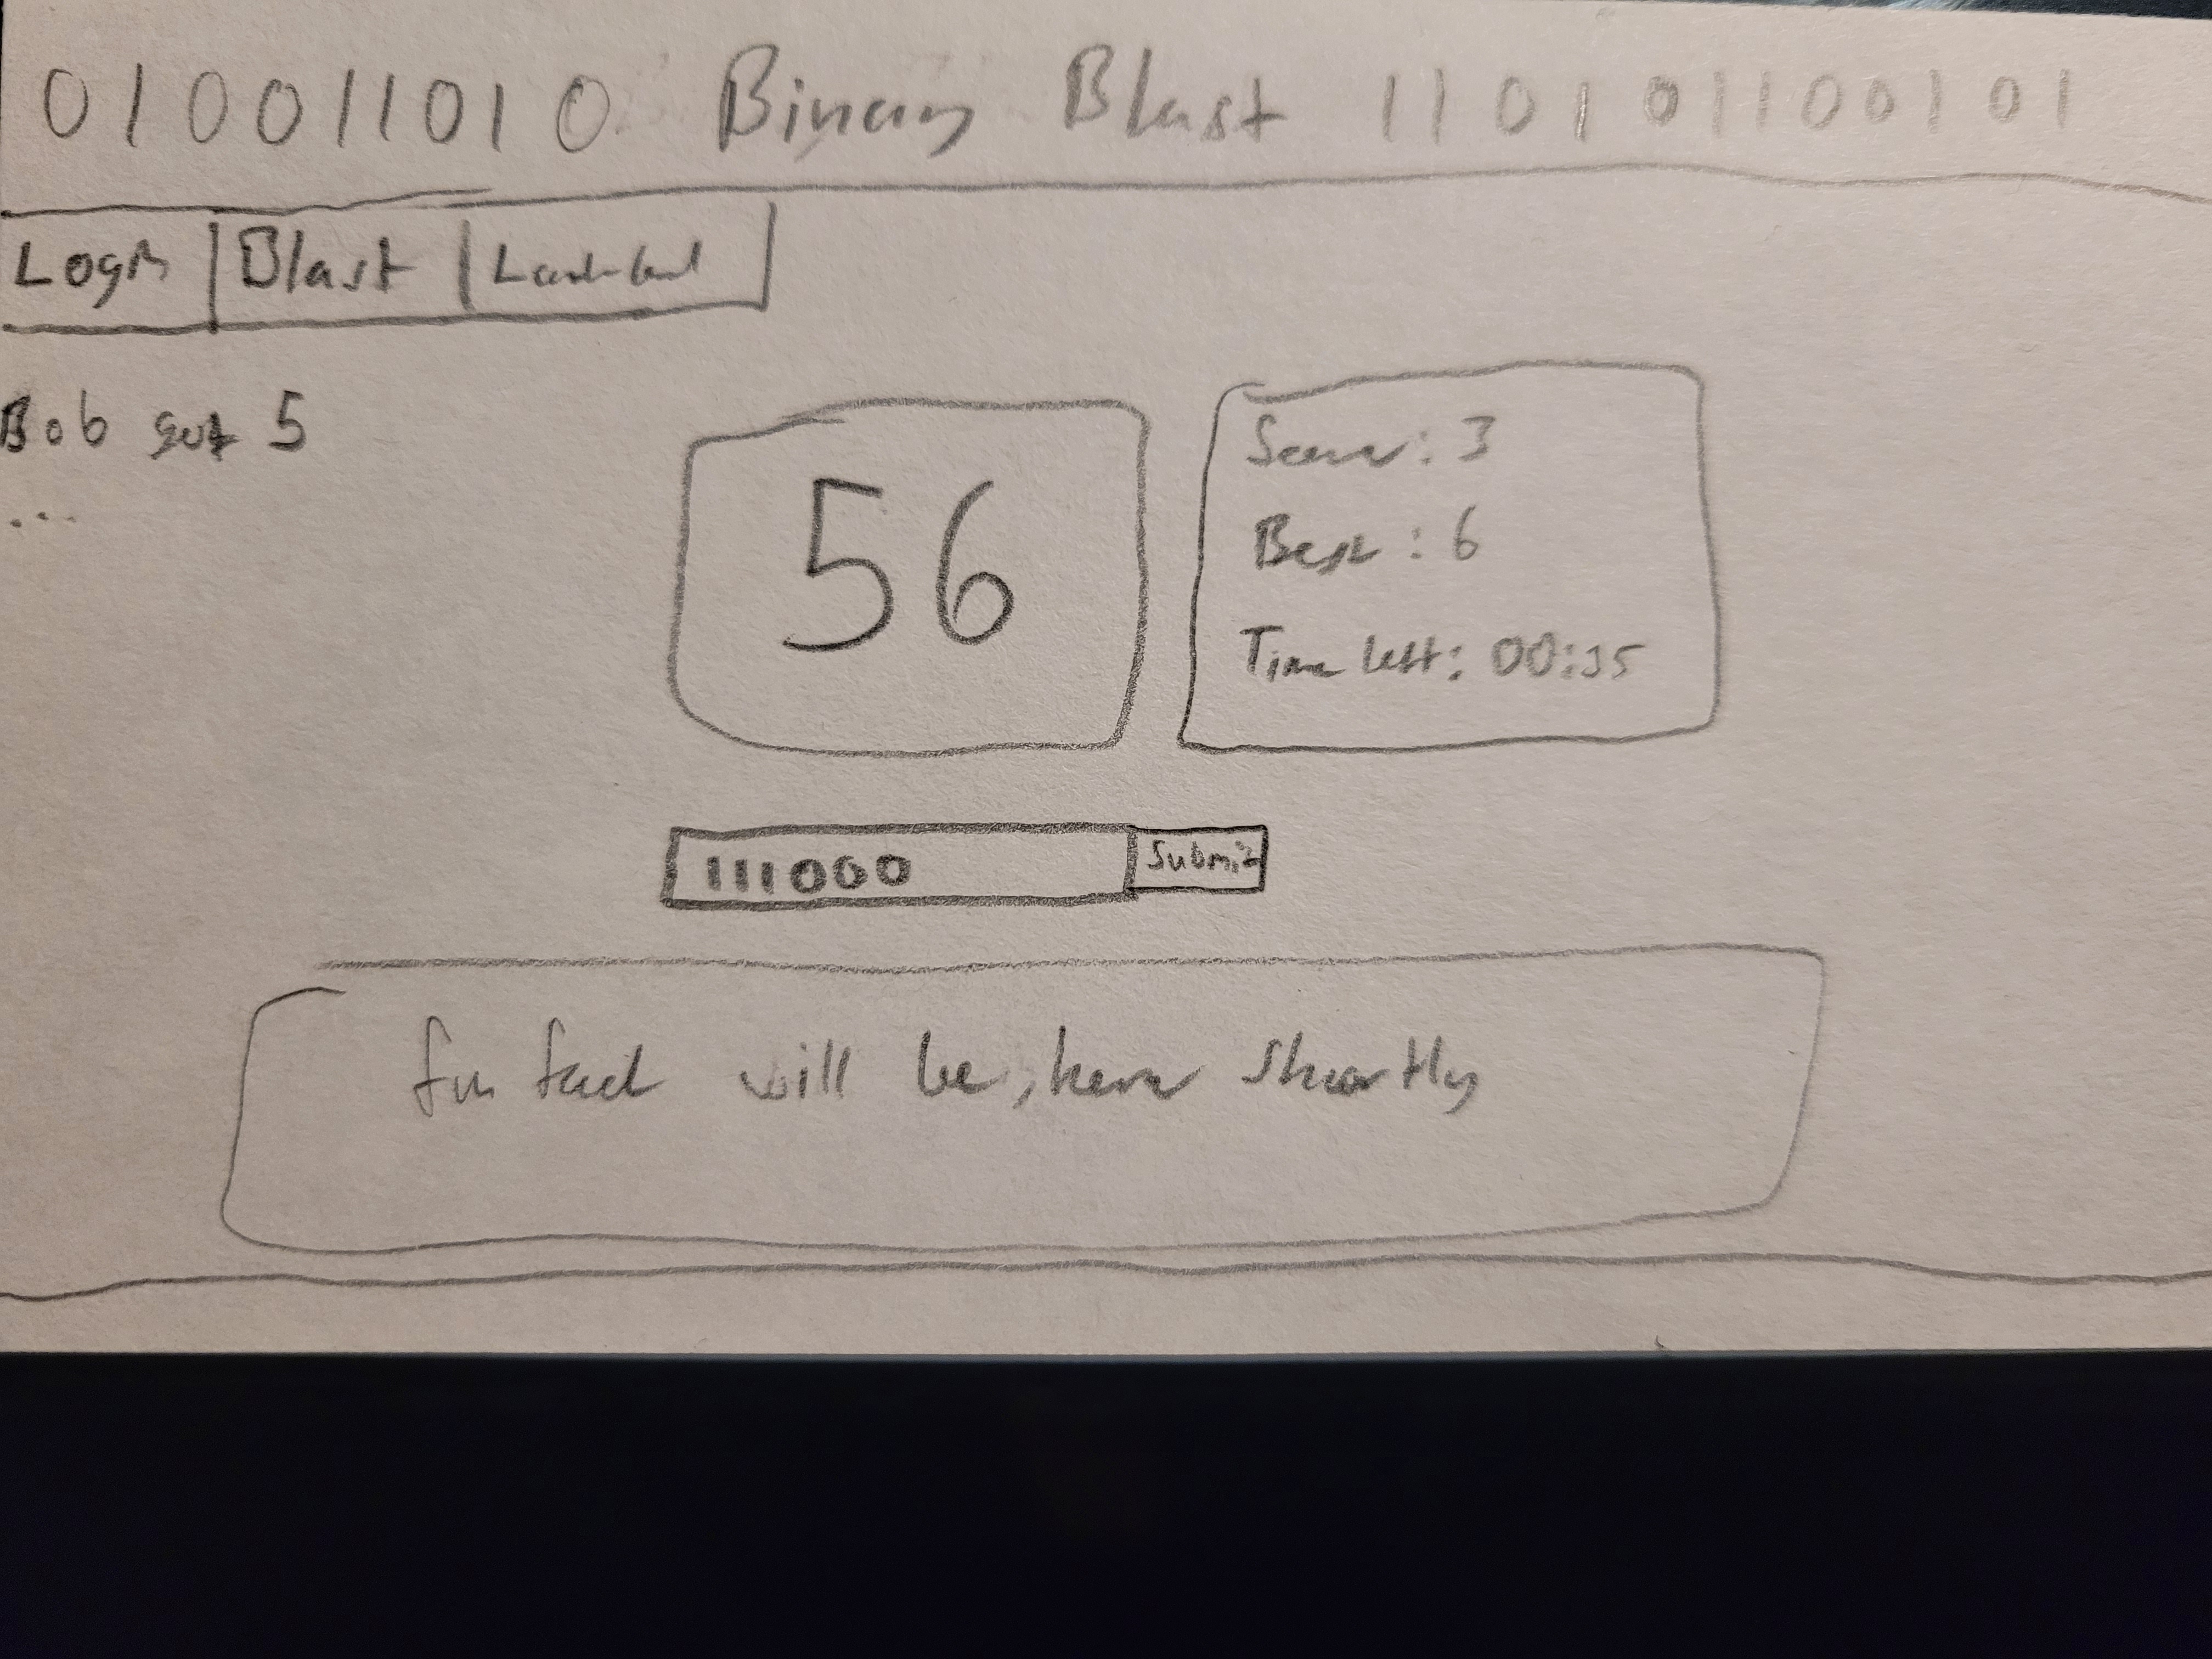 010011010 Binary Blast 110101100101
Login Blast
Bob got 5
...
56
Score: 3
Best: 6
Time left: 00:35
111000 Submit
fun fact will be here shortly